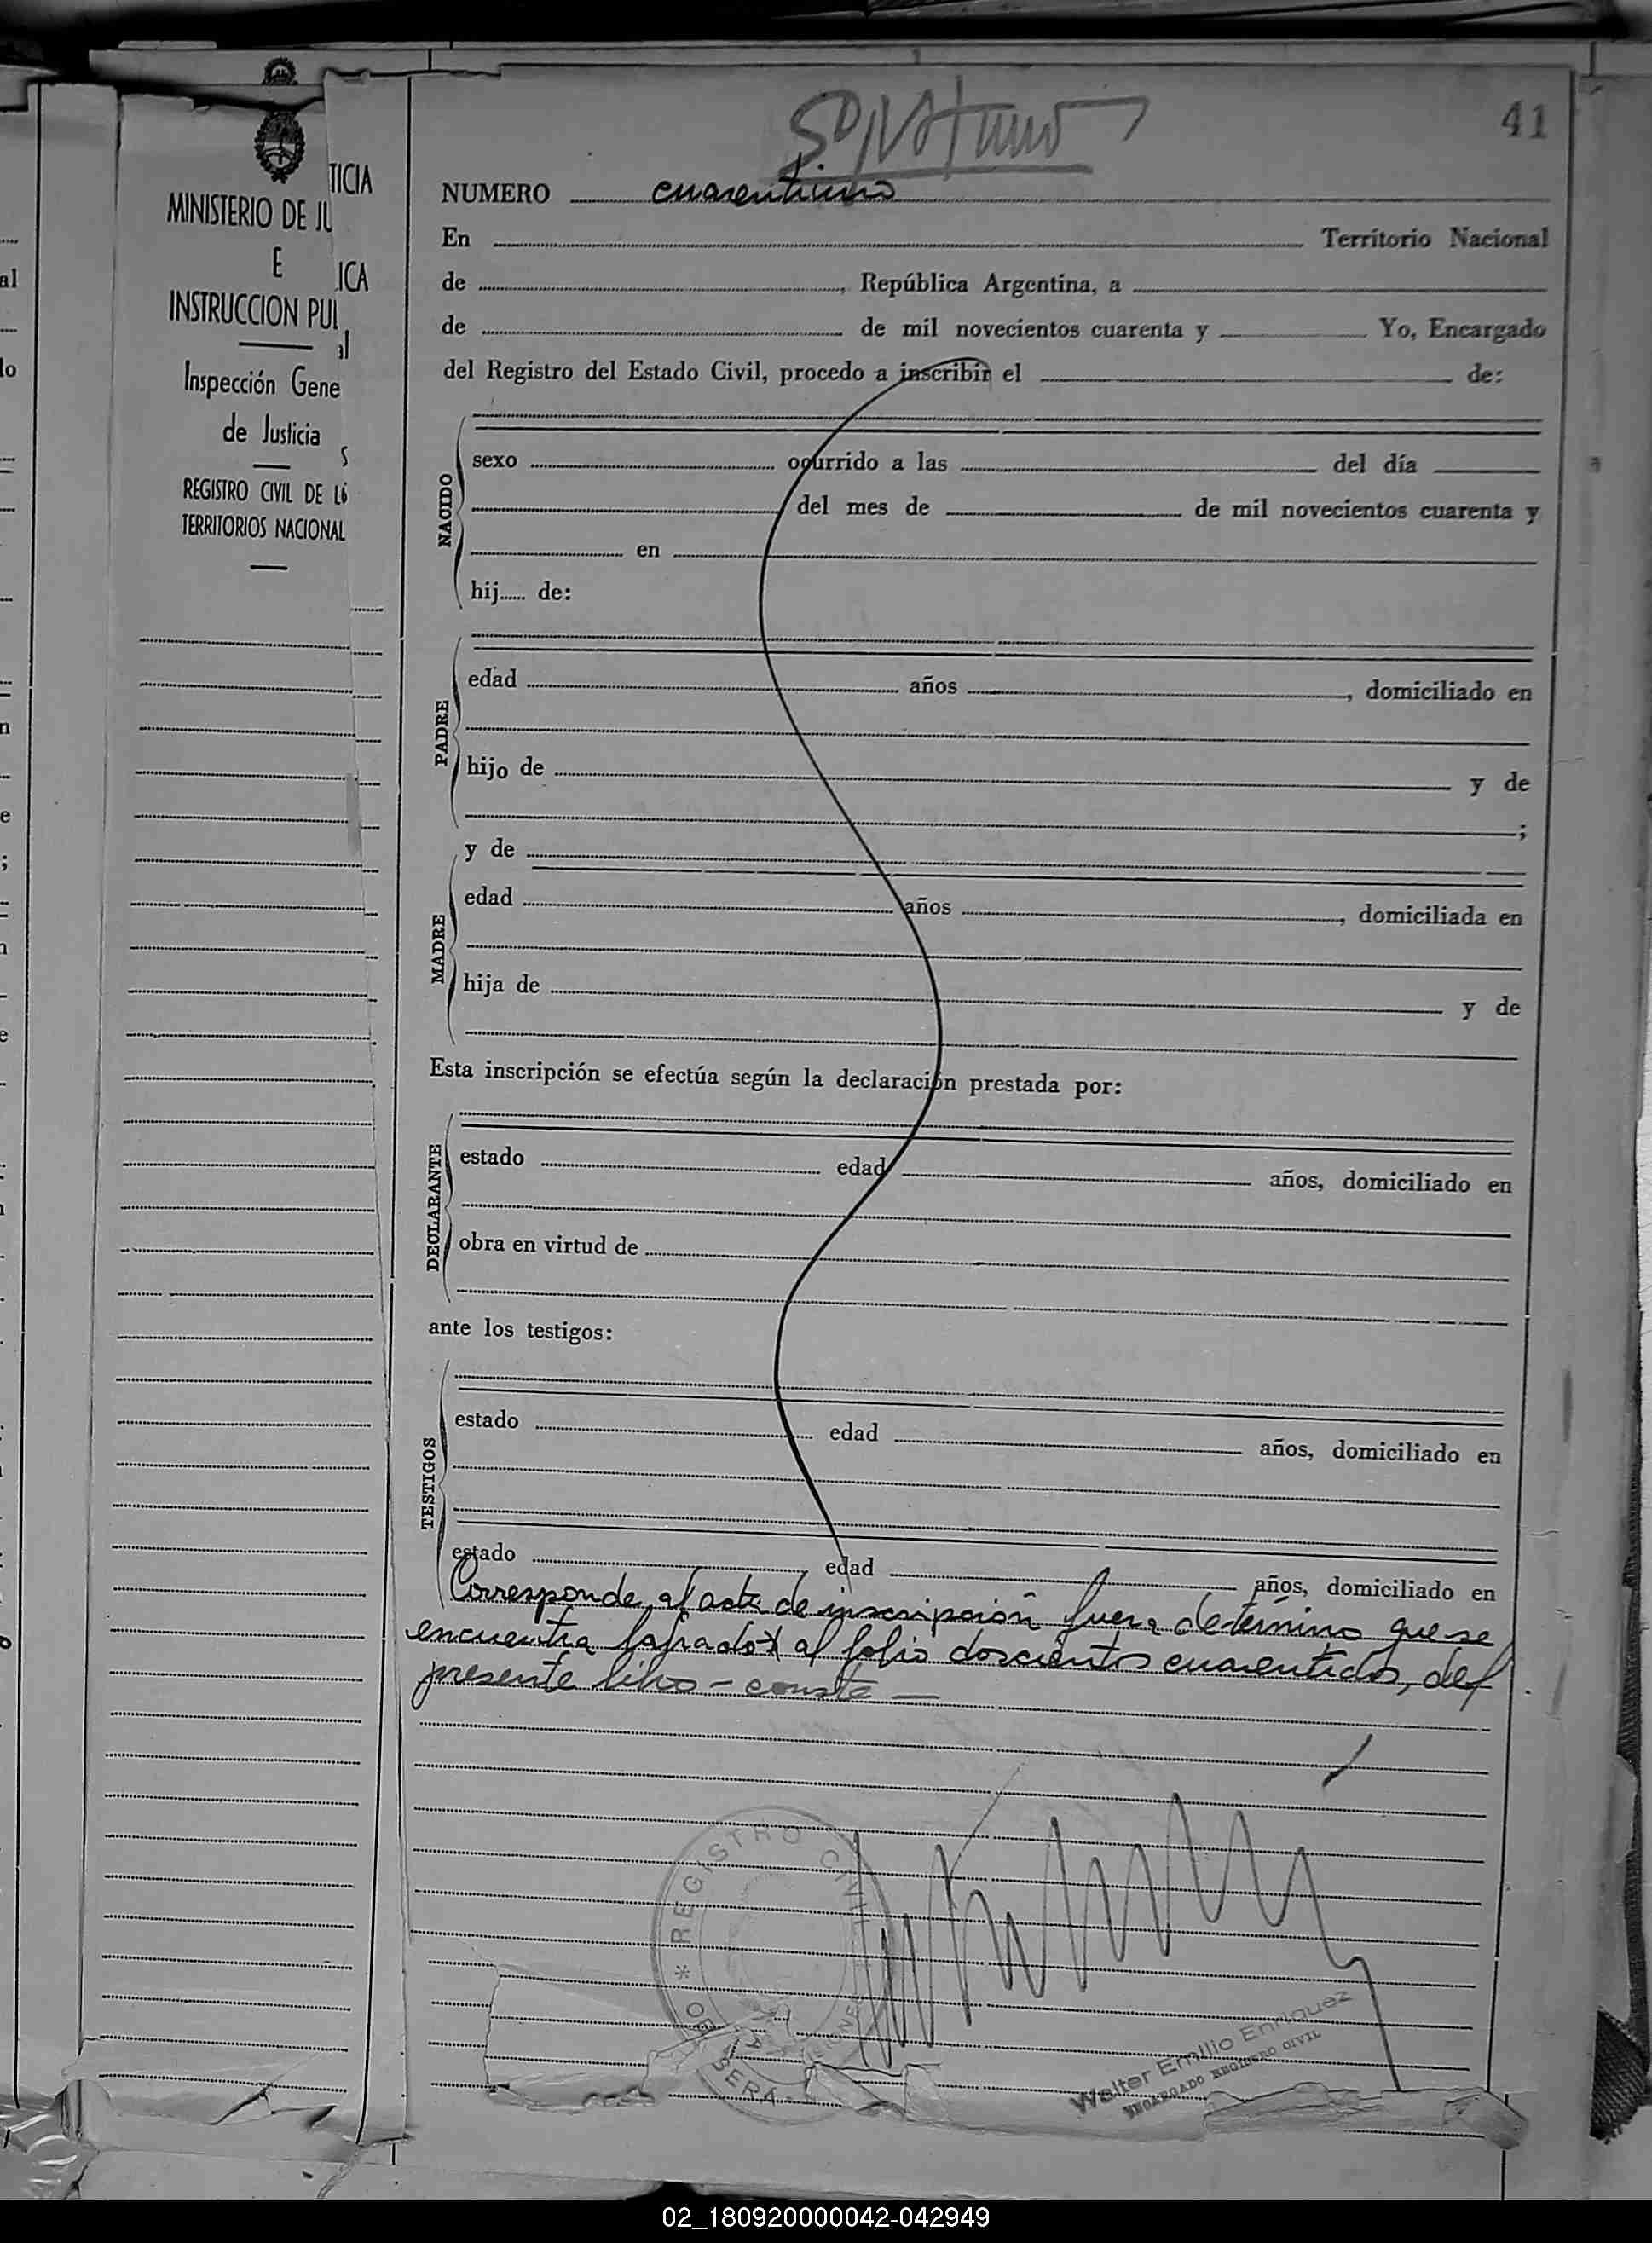 41
NUMERO cuarentiuno
En Territorio Nacional
de , República Argentina, a
de de mil novecientos cuarenta y Yo, Encargado
del Registro del Estado Civil, procedo a inscribir el de:
NACIDO
sexo ocurrido a las del día
del mes de de mil novecientos cuarenta y
en
hij...... de:
PADRE
edad años , domiciliado en
hijo de y de
;
MADRE
y de
edad años , domiciliada en
hija de y de
Esta inscripción se efectúa según la declaración prestada por:
DECLARANTE
estado edad años, domiciliado en
obra en virtud de
ante los testigos:
TESTIGOS
estado edad años, domiciliado en
estado edad años, domiciliado en
Corresponde al acta de inscripción fuera de término que se
encuentra labrado al folio doscientos cuarentidos, del
presente libro - conste —
REGISTRO CIVIL
Walter Emilio Enriquez
ENCARGADO REGISTRO CIVIL
TICIA
MINISTERIO DE JU
E ICA
INSTRUCCION PUI
al
Inspección Gene
de Justicia
s
REGISTRO CIVIL DE LO
TERRITORIOS NACIONAL
al
lo
02_180920000042-042949